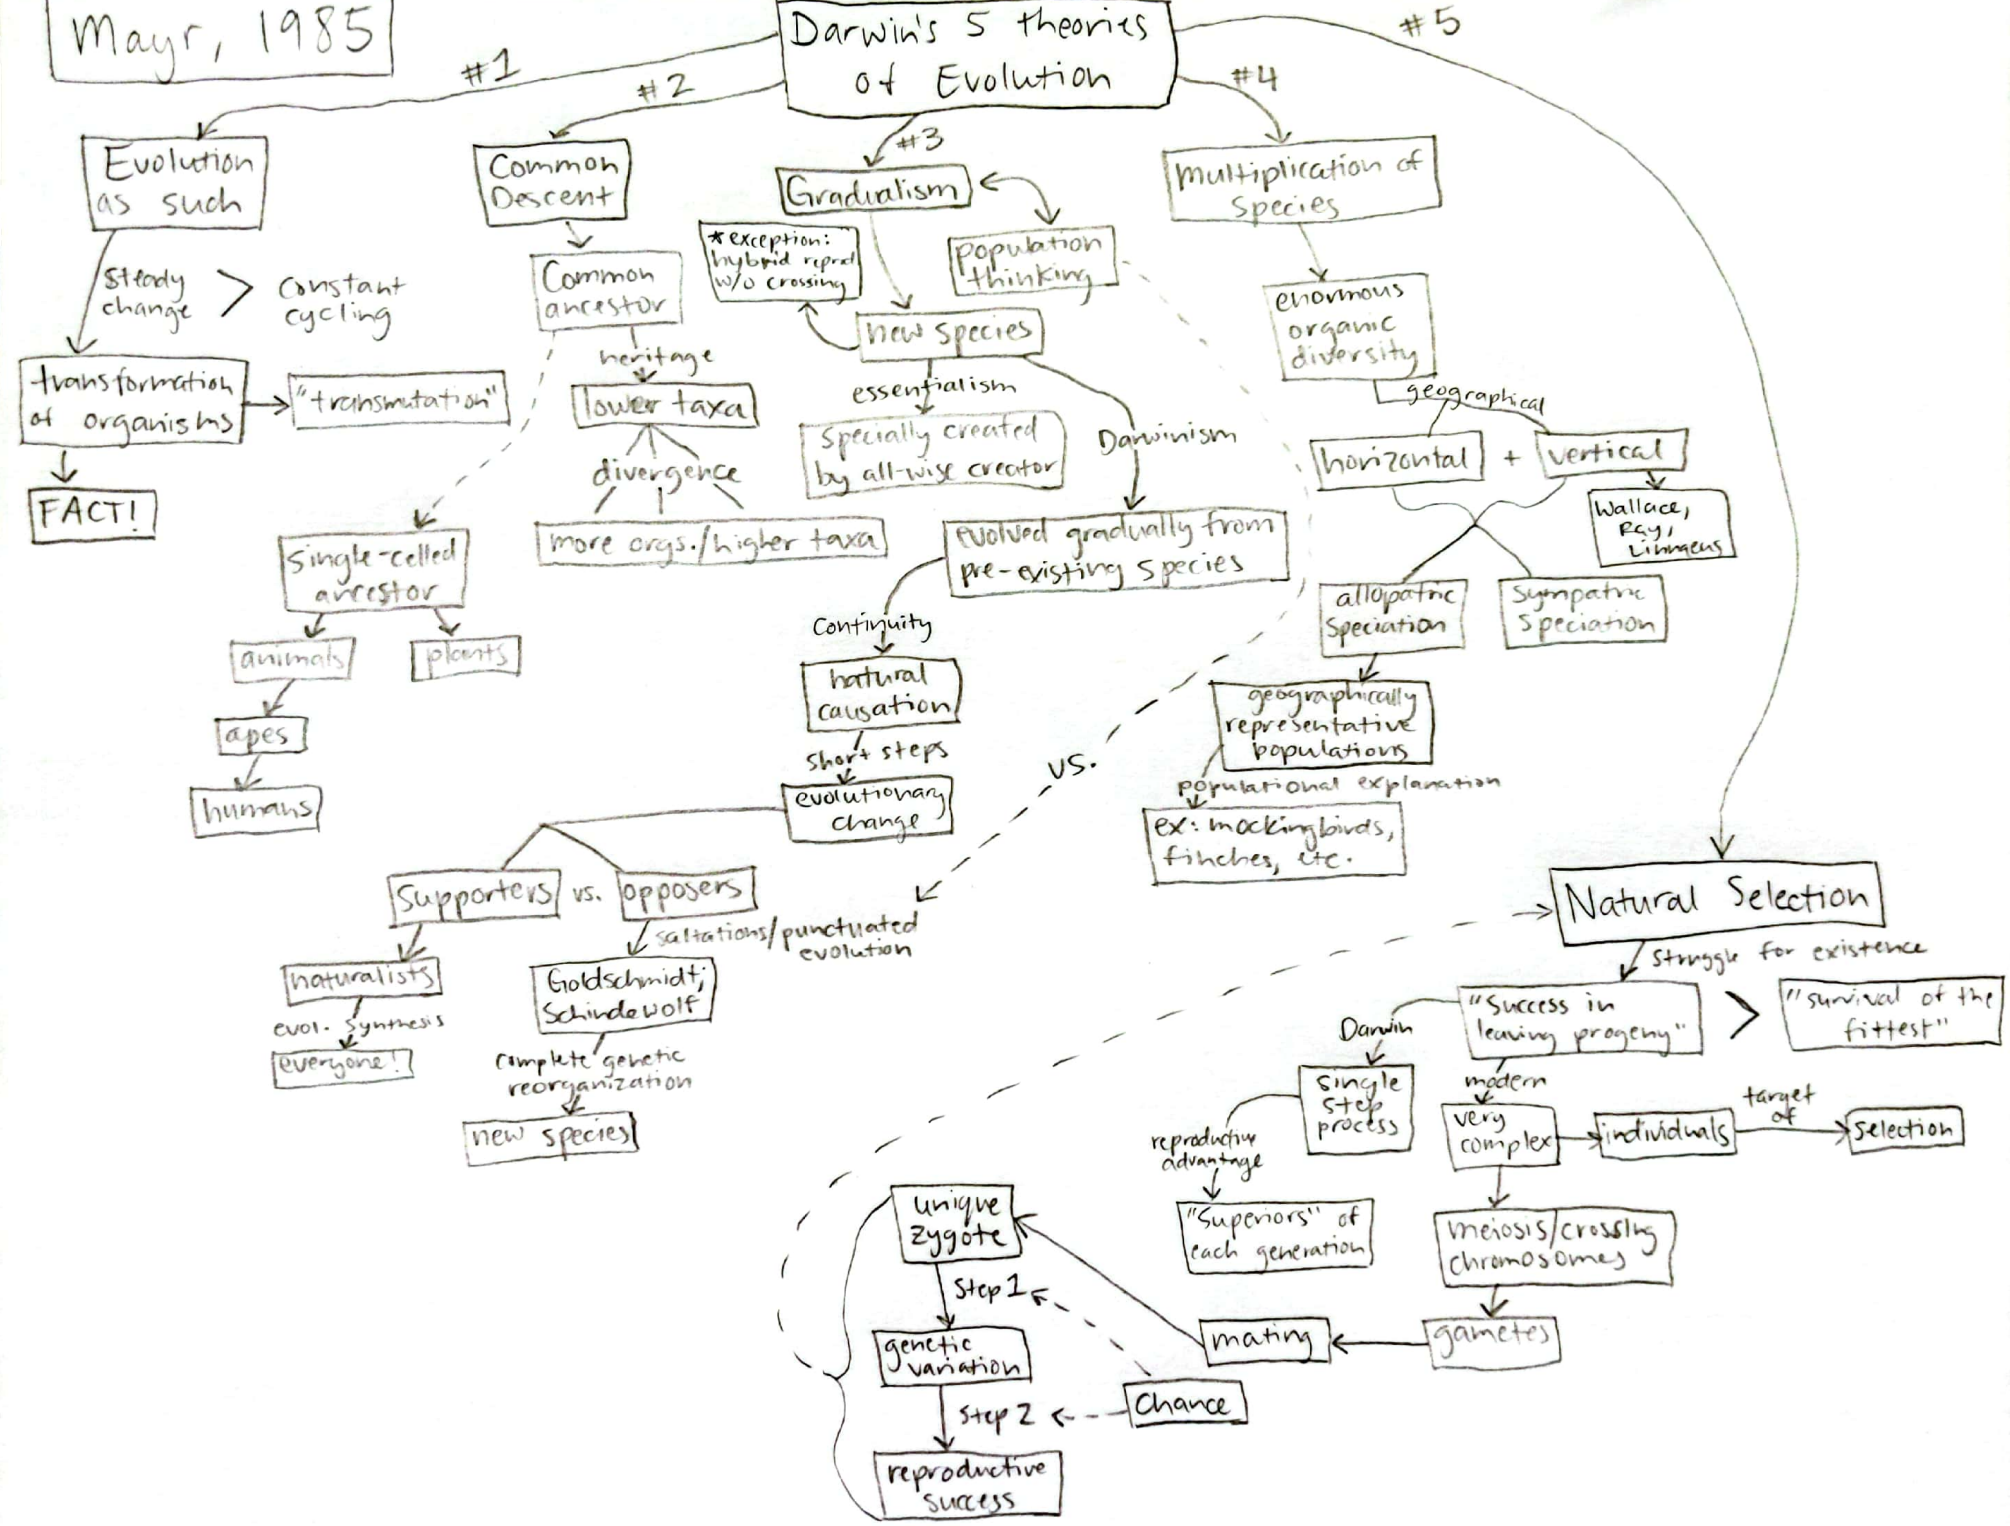 Mayr, 1985
Darwin's 5 theories
of Evolution
#1
#2
#3
#4
#5
Evolution
as such
Steady
change
>
Constant
cycling
transformation
of organisms
"transmutation"
FACT!
Common
Descent
Common
ancestor
heritage
lower taxa
divergence
more orgs./higher taxa
single-celled
ancestor
animals
plants
apes
humans
Gradualism
population
thinking
*exception:
hybrid reprod
w/o crossing
new species
essentialism
Specially created
by all-wise creator
Darwinism
evolved gradually from
pre-existing species
Continuity
natural
causation
short steps
evolutionary
change
Supporters
vs.
opposers
naturalists
evol. synthesis
everyone!
saltations/punctuated
evolution
Goldschmidt;
Schindewolf
complete genetic
reorganization
new species
vs.
Multiplication of
Species
enormous
organic
diversity
geographical
horizontal
+
vertical
Wallace,
Ray,
Linnaeus
allopatric
Speciation
Sympatric
Speciation
geographically
representative
populations
populational explanation
ex: mockingbirds,
finches, etc.
Natural Selection
Struggle for existence
"Success in
leaving progeny"
>
"survival of the
fittest"
Darwin
single
step
process
reproductive
advantage
"Superiors" of
each generation
modern
very
complex
individuals
target
of
selection
meiosis/crossing
chromosomes
gametes
mating
unique
zygote
Step 1
genetic
variation
Step 2
Chance
reproductive
success